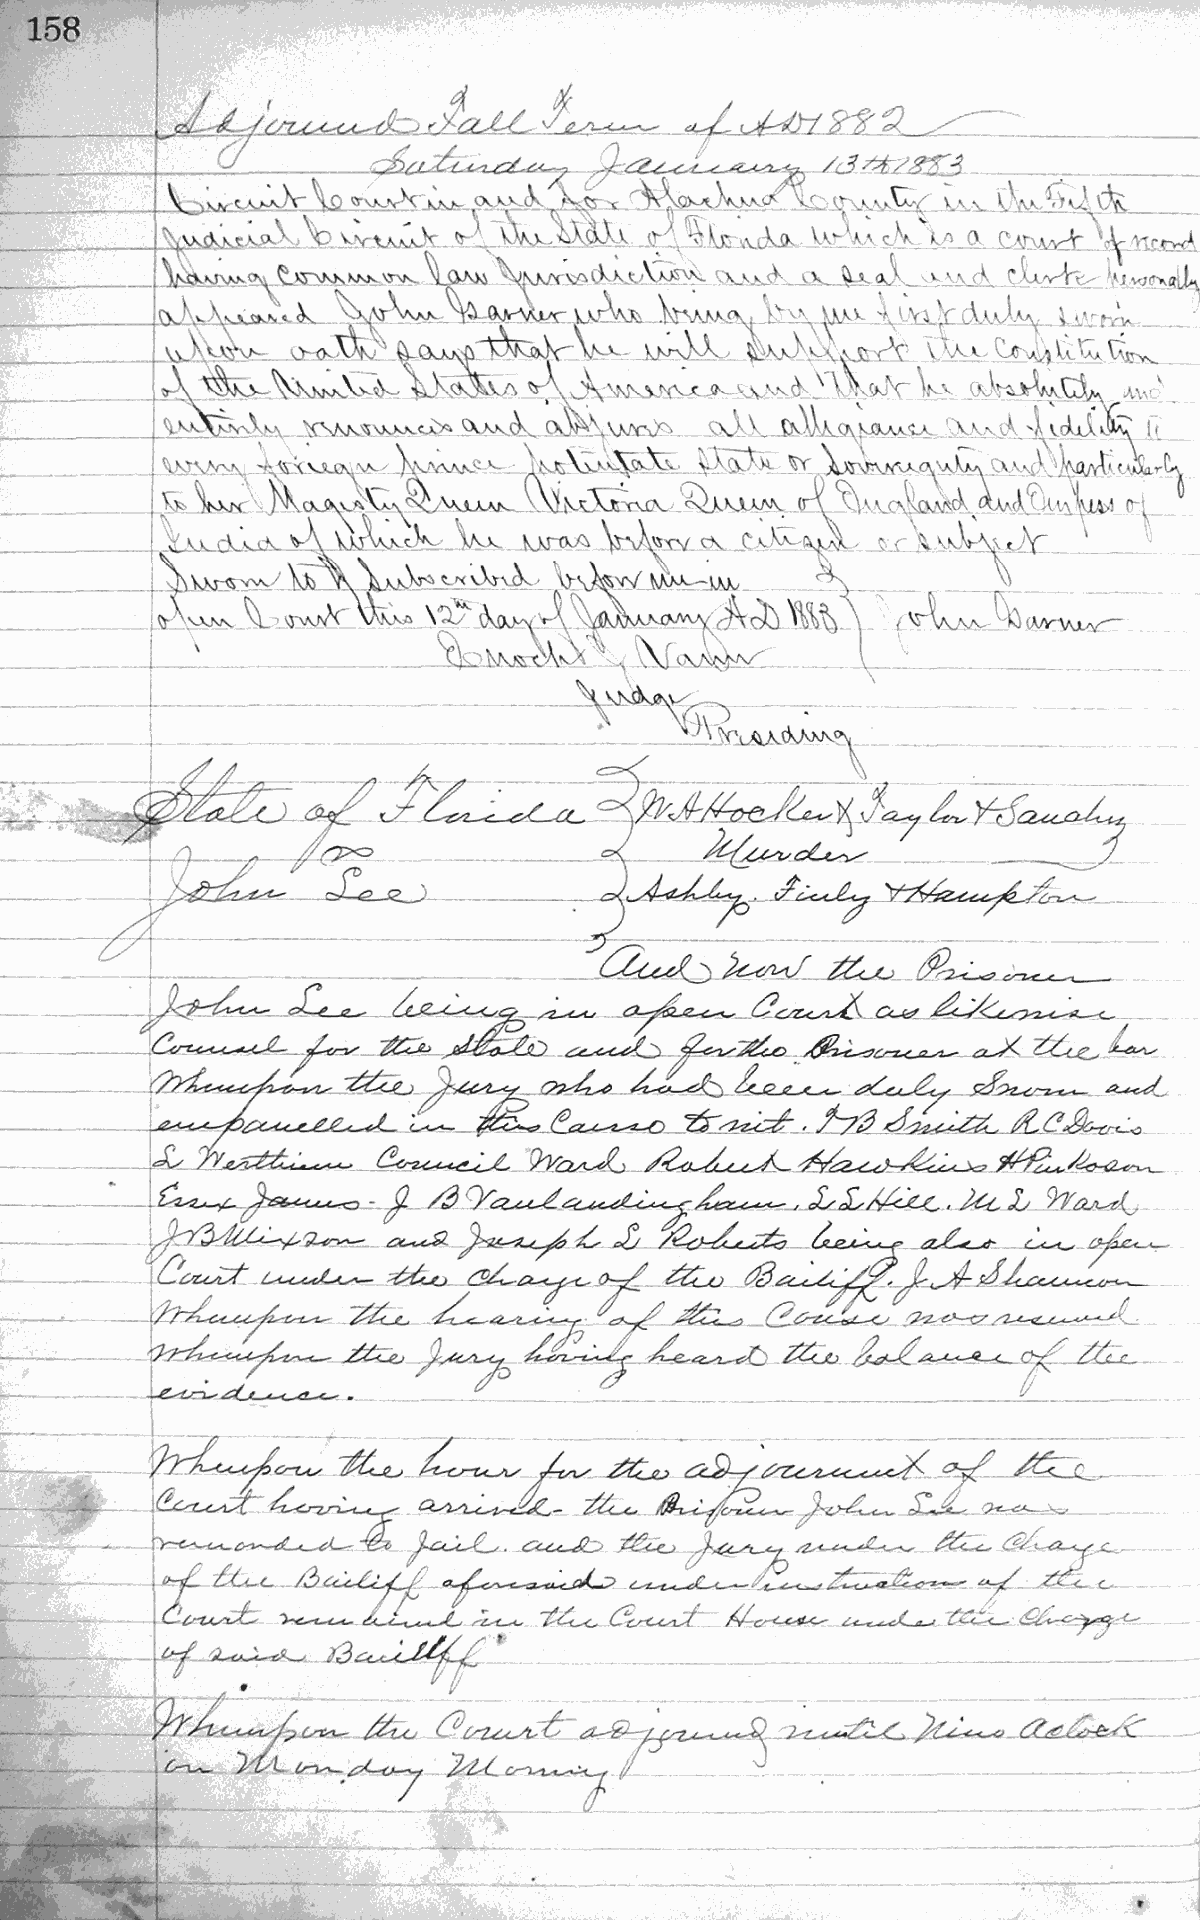 158
Adjourned Fall Term of AD 1882
Saturday January 13th 1883
Circuit Court in and for Alachua County in the Fifth
Judicial Circuit of the State of Florida which is a court of record
having common law Jurisdiction and a seal and clerk personally
appeared John Garner who being by me first duly sworn
upon oath says that he will support the Constitution
of the United States of America and that he absolutely and
entirely renounces and abjures all allegiance and fidelity to
every foriegn prince potentate state or sovereignty and particularly
to her Magesty Queen Victoria Queen of England and Empess of
India of which he was before a citizen or subject
Sworn to & Subscribed before me in
open Court this 12th day of January AD 1883 John Garner
Enoch J Vann
Judge
Presiding
State of Florida W. A Hocker & Taylor & Sanchez
vs Murder
John Lee Ashby. Finly & Hampton
And now the Prisoner
John Lee being in open Court as likewise
Counsel for the State and for the Prisoner at the bar
Whereupon the Jury who had been duly Sworn and
empanelled in this Cause to wit. T B Smith R C Davis
L Wertheim Council Ward Robert Hawkins H Pinkoson
Essex James - J B Vanlandingham. L L Hill. M L Ward
J B Mixson and Joseph L Roberts being also in open
Court under the charge of the Bailiff. J. A Shannon
Whereupon the hearing of this Cause was resumed
Whereupon the Jury having heard the balance of the
evidence.
Whereupon the hour for the adjournment of the
Court having arrived - the Prisoner John Lee was
remanded to Jail. and the Jury under the Charge
of the Bailiff aforesaid under instructions of the
Court remained in the Court House under the Charge
of said Bailiff
Whereupon the Court adjourned until Nine Oclock
on Monday Morning